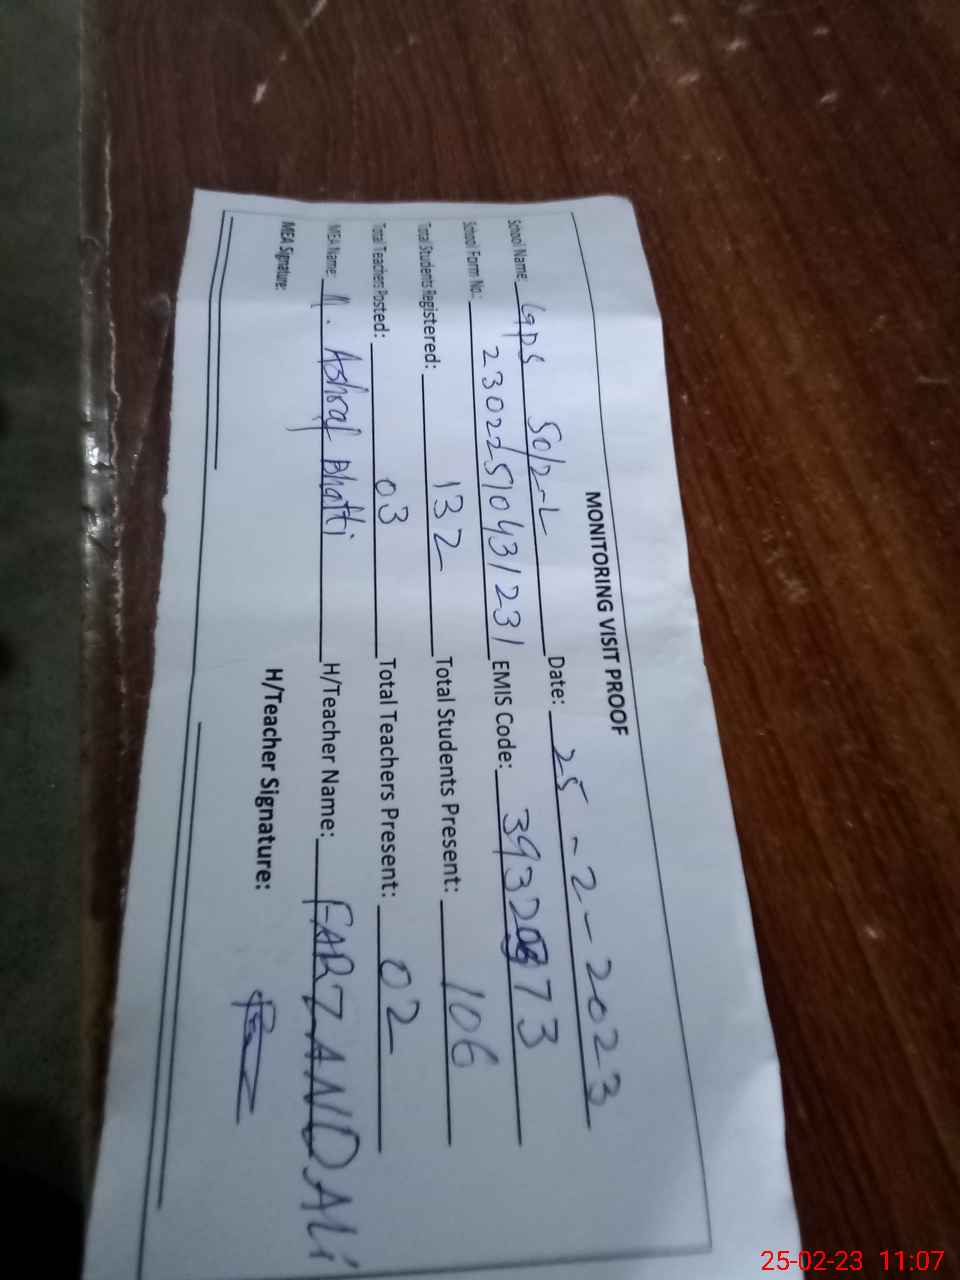 MONITORING VISIT PROOF
School Name: GPS 50/2-L Date: 25-2-2023
School Form No.: 23022510431231 EMIS Code: 39320173
Total Students Registered: 132 Total Students Present: 106
Total Teachers Posted: 03 Total Teachers Present: 02
MEA Name: M. Ashraf Bhatti H/Teacher Name: FARZAND ALi
MEA Signature: H/Teacher Signature:
25-02-23 11:07